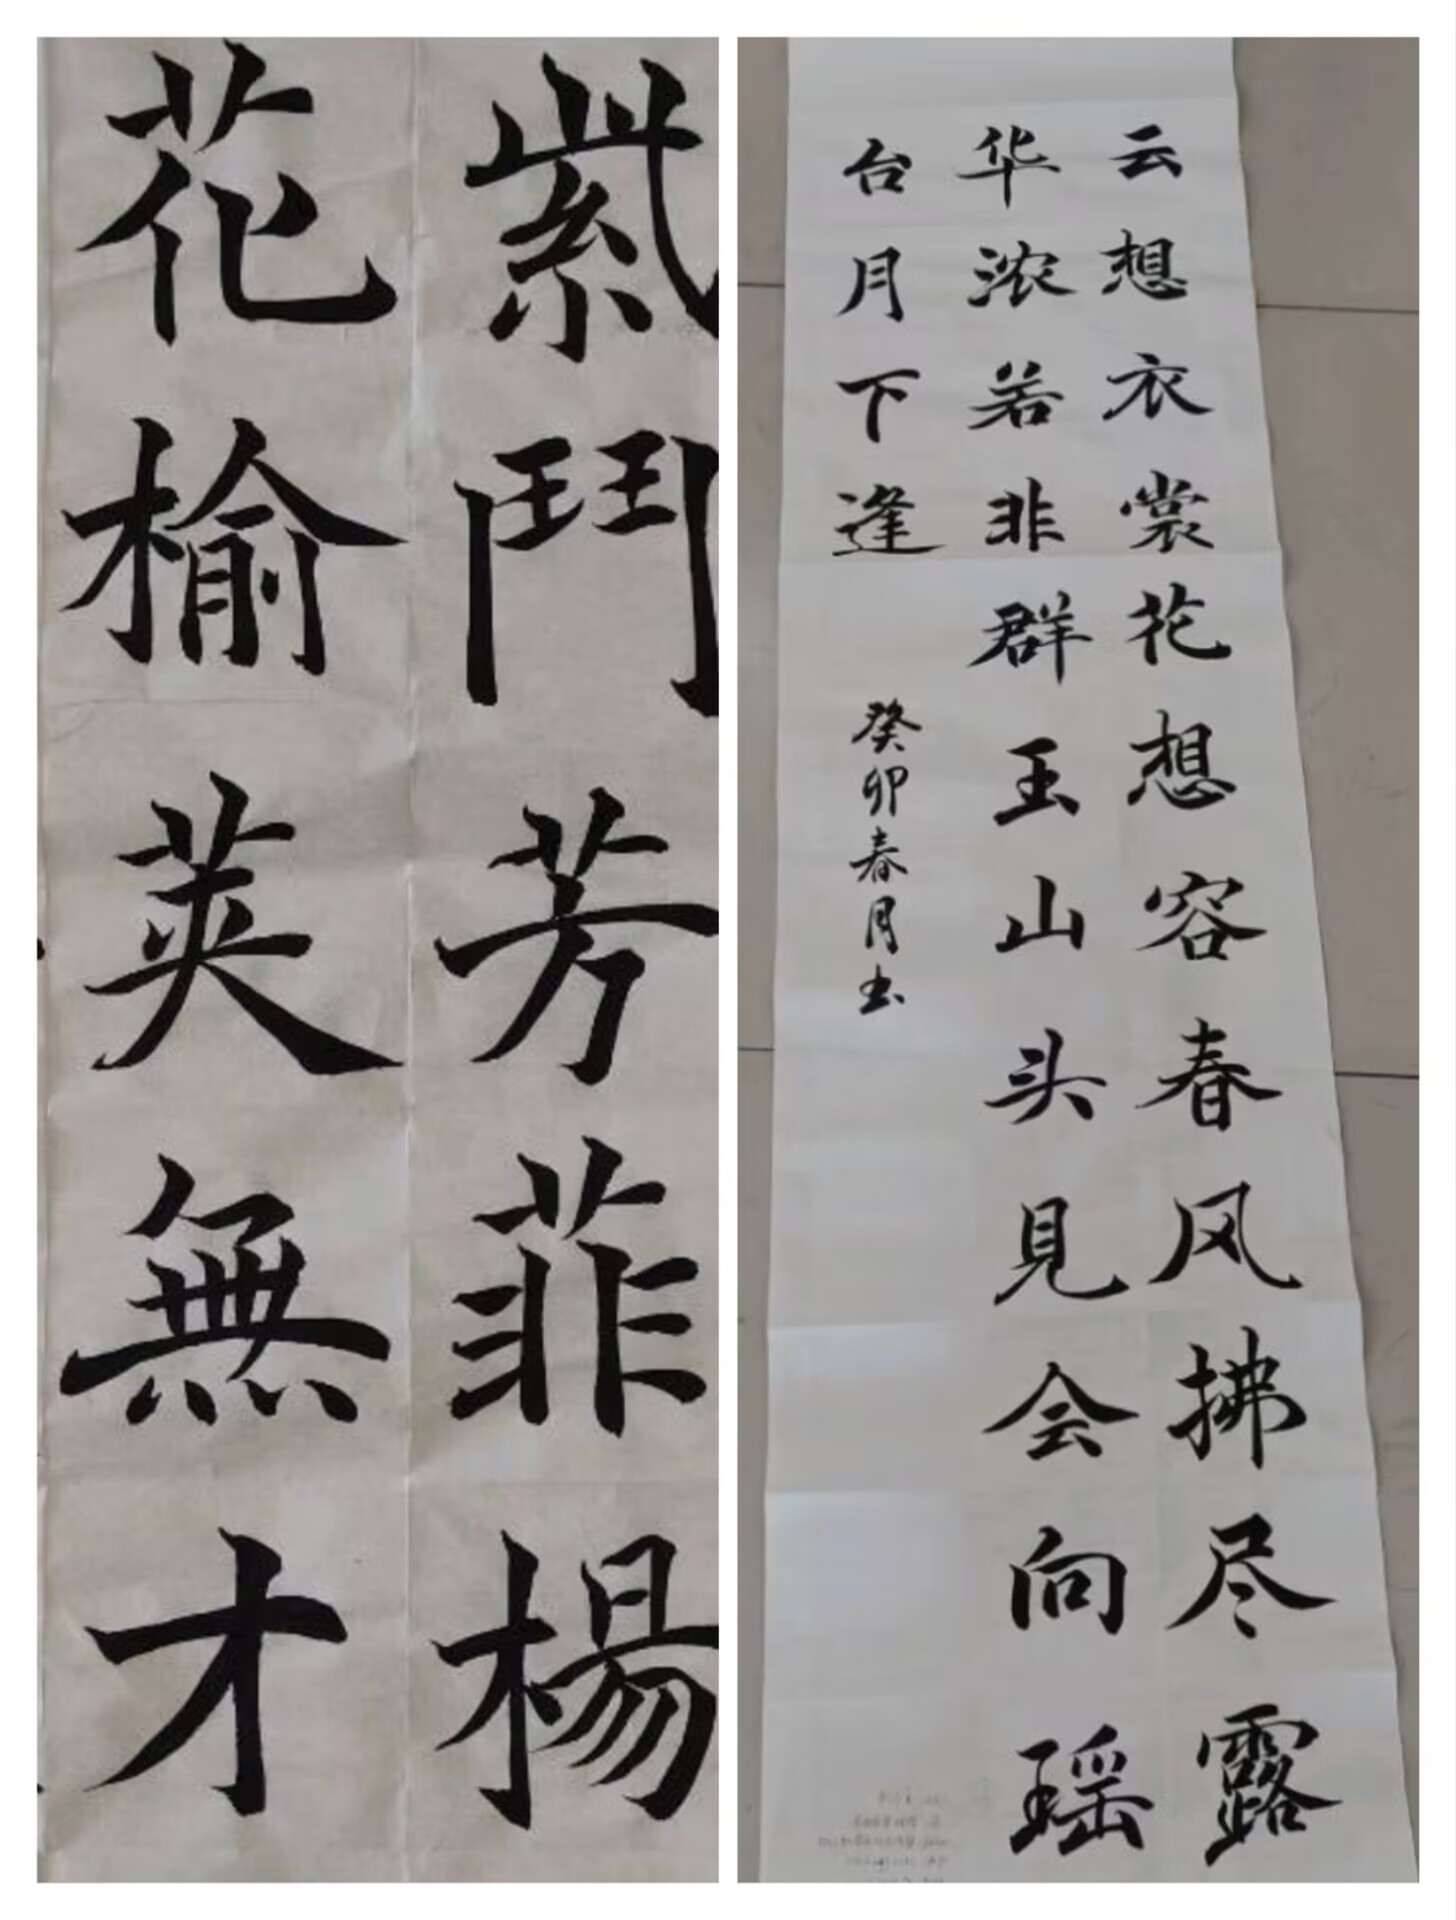 紫鬥芳菲楊
花榆莢無才
云想衣裳花想容春风拂尽露
华浓若非群玉山头見会向瑶
台月下逢
癸卯春月书